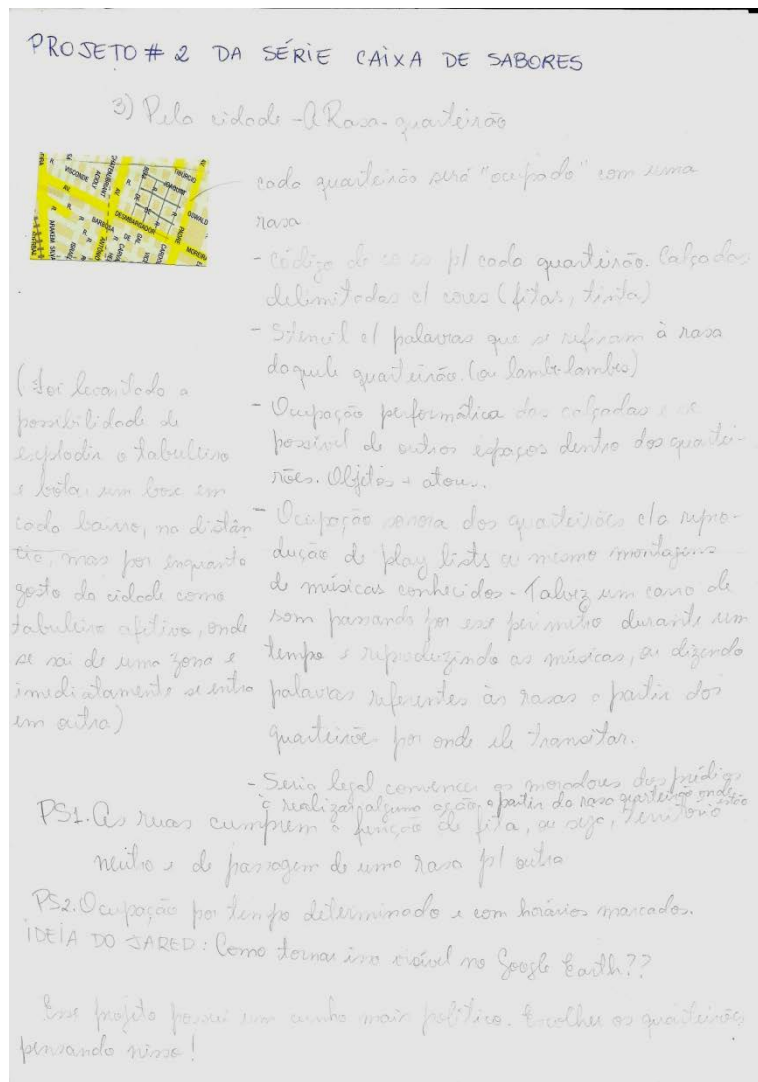 PROJETO # 2 DA SÉRIE CAIXA DE SABORES
3) Pela cidade - A Rasa-quarteirão
cada quarteirão será "ocupado" com uma
rasa
- Código de cores p/ cada quarteirão. Calçadas
delimitadas c/ cores (fitas, tinta)
- Stencil c/ palavras que se refiram à rasa
daquele quarteirão. (ou lambe-lambes)
- Ocupação performática das calçadas e se
possível de outros espaços dentro dos quartei-
rões. Objetos + atores.
- Ocupação sonora dos quarteirões c/a repro-
dução de play lists ou mesmo montagens
de músicas conhecidas - Talvez um carro de
som passando por esse perímetro durante um
tempo e reproduzindo as músicas, ou dizendo
palavras referentes às rasas a partir dos
quarteirões por onde ele transitar.
- Seria legal convencer os moradores dos prédios
a realizar alguma ação a partir da rasa quarteirão onde estão
(Foi levantada a
possibilidade de
explodir o tabuleiro
e botar um boxe em
cada bairro, na distân-
cia, mas por enquanto
gosto da cidade como
tabuleiro afetivo, onde
se sai de uma zona e
imediatamente se entra
em outra)
PS1. As ruas cumprem a função de fita, ou seja, território
neutro e de passagem de uma rasa p/ outra
PS2. Ocupação por tempo determinado e com horários marcados.
IDEIA DO JARED: Como tornar isso visível no Google Earth??
Esse projeto possui um cunho mais político. Escolher os quarteirões
pensando nisso!
VISCONDE
ACIOLI
CHATEAUBRIANT
TIBÚRCIO
JOAQUIM
OSWALD
BARBOSA
DESEMBARGADOR
PADRE
MOREIRA
ANTONIO